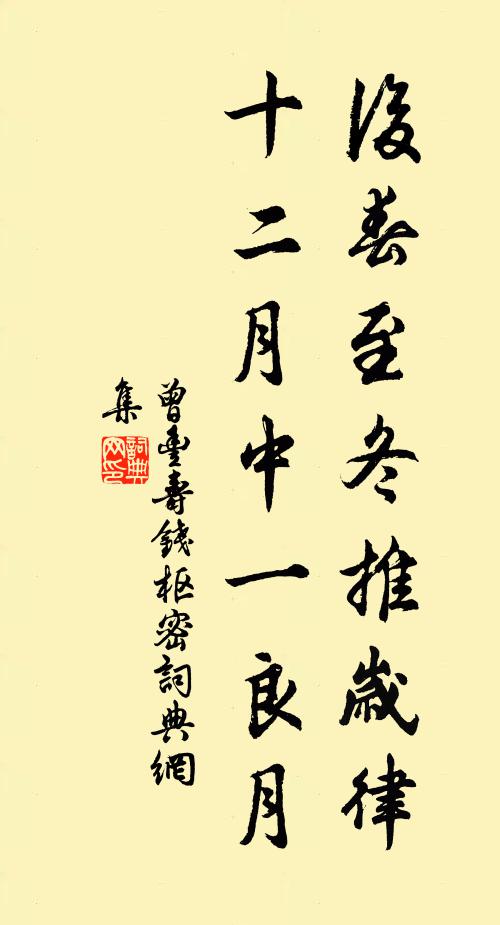 後春至冬推歲律
十二月中一良月
曾豐壽錢枢密詞典網
集
詞典
网印